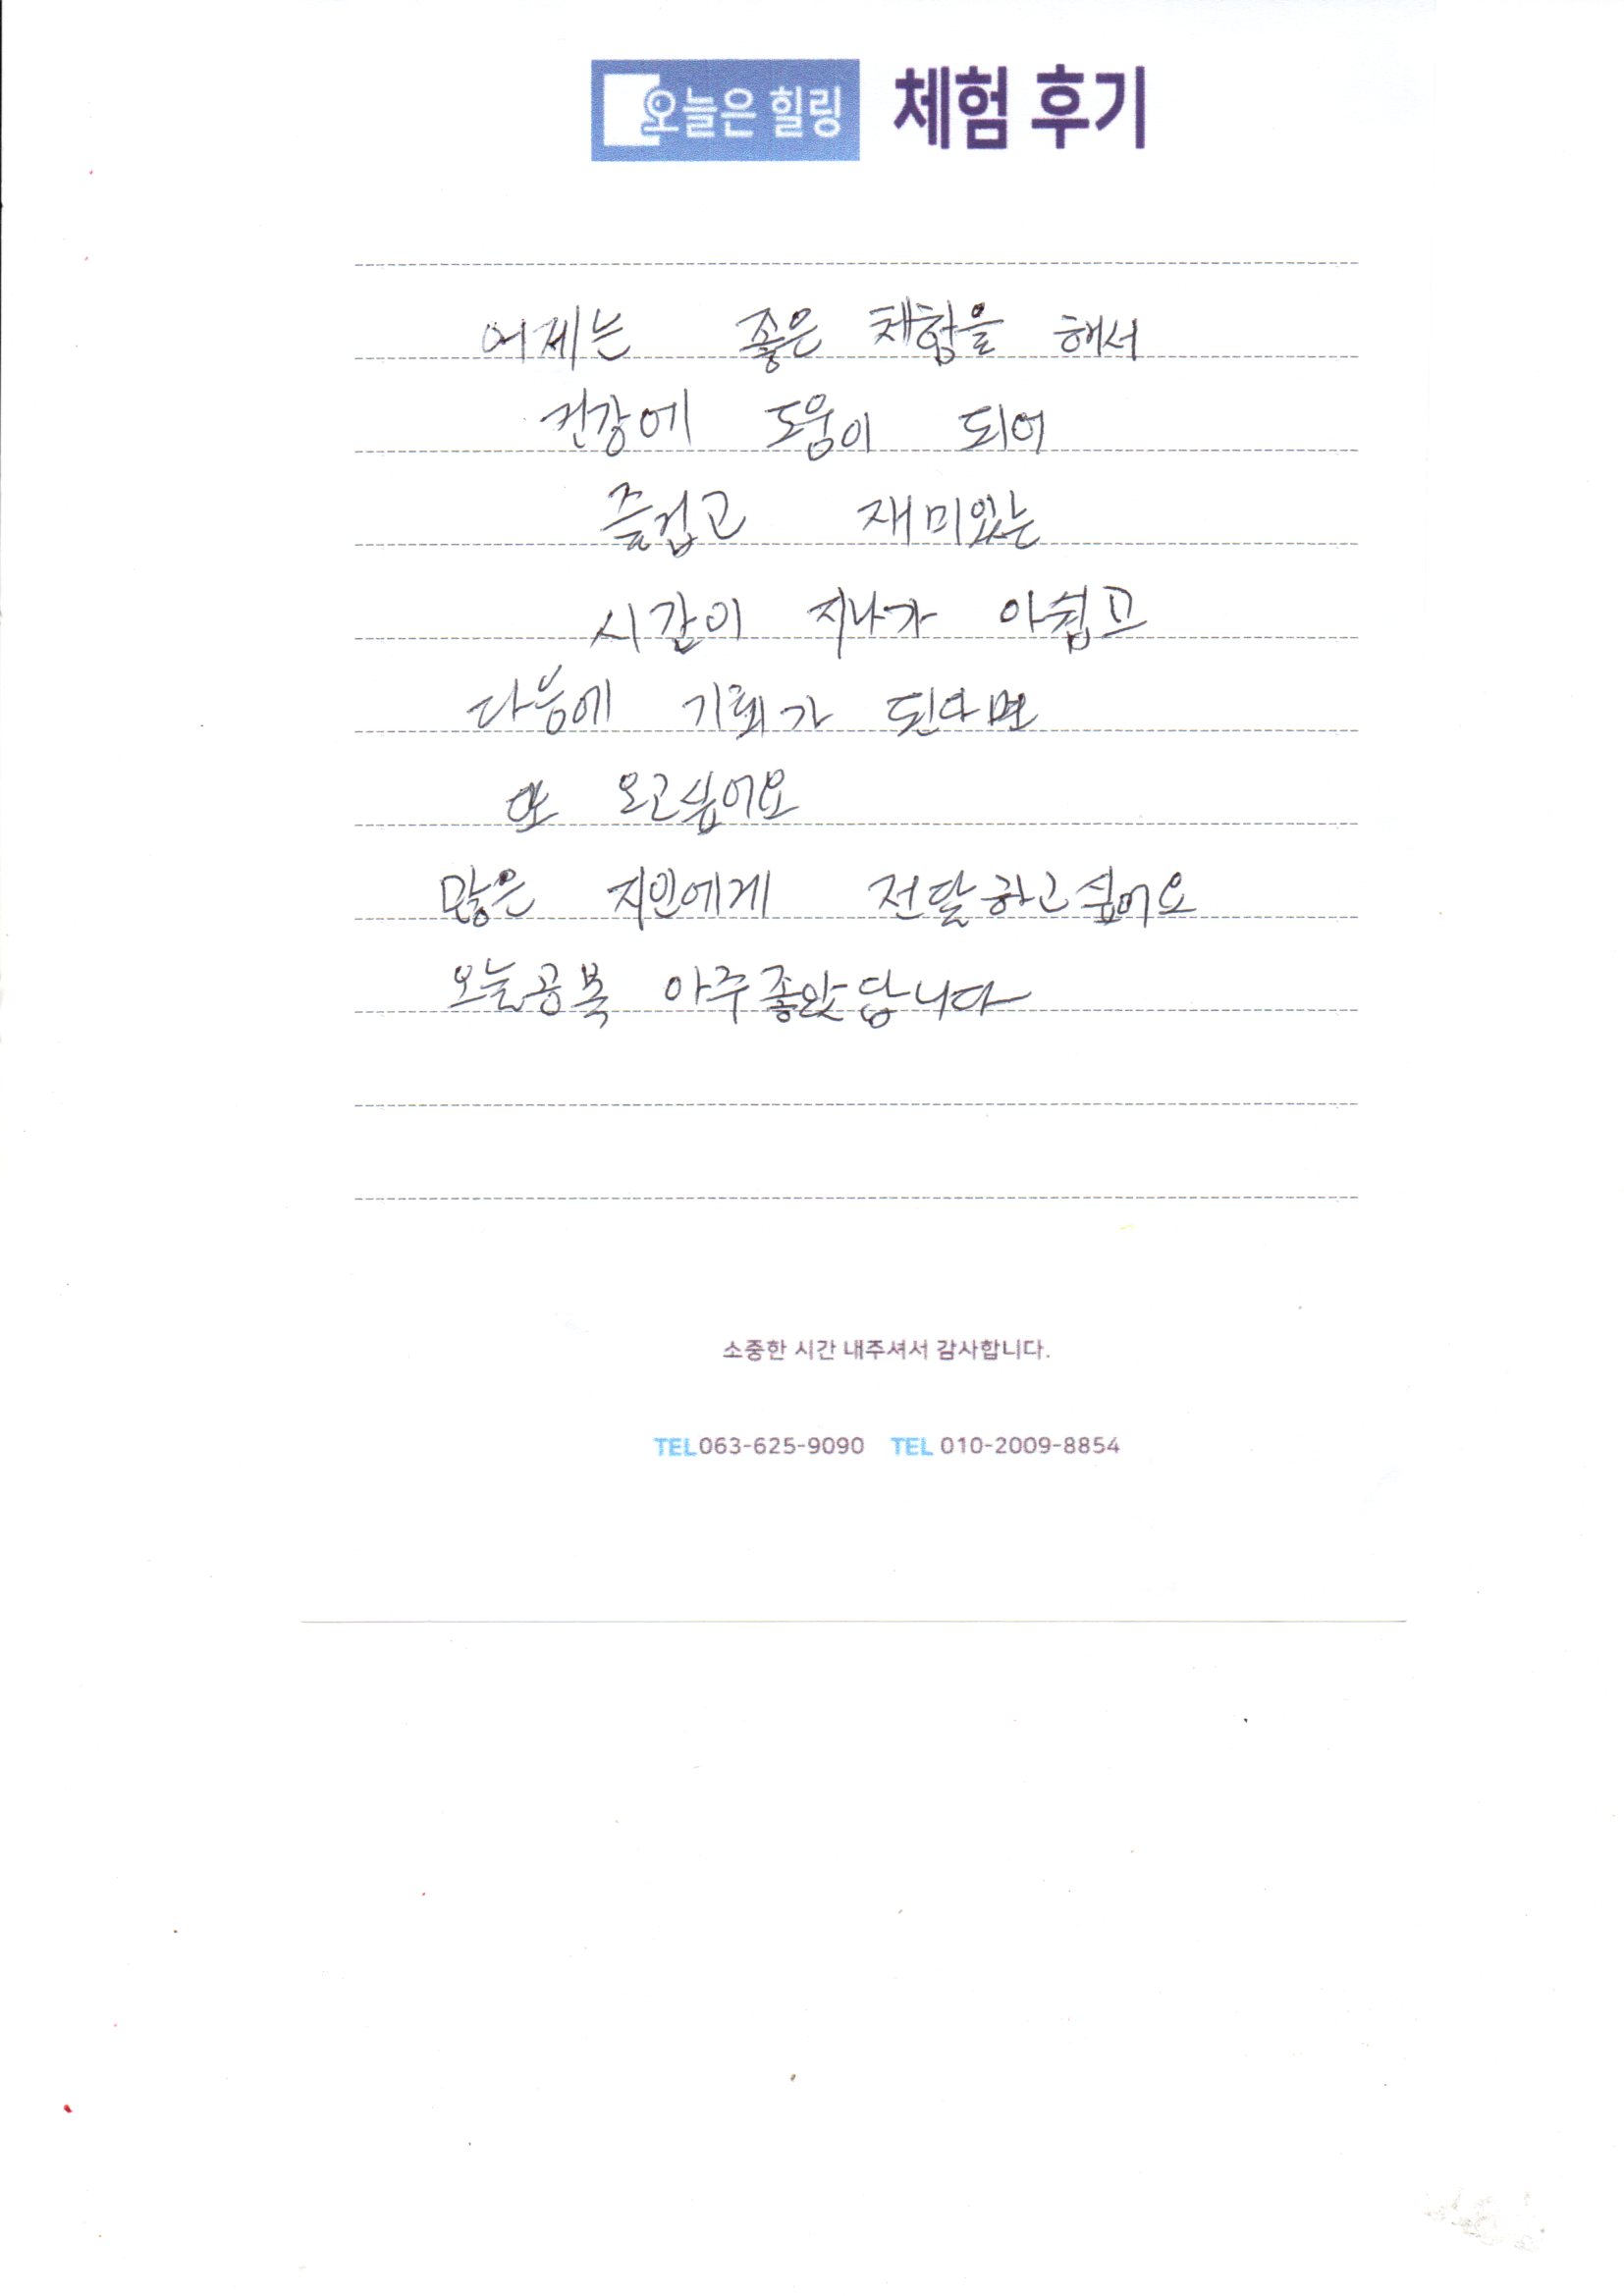 오늘은 힐링 체험 후기
어제는 좋은 체험을 해서
건강에 도움이 되어
즐겁고 재미있는
시간이 지나가 아쉽고
다음에 기회가 된다면
또 오고싶어요
많은 지인에게 전달하고싶어요
오늘공복 아주좋았답니다
소중한 시간 내주셔서 감사합니다.
TEL 063-625-9090 TEL 010-2009-8854